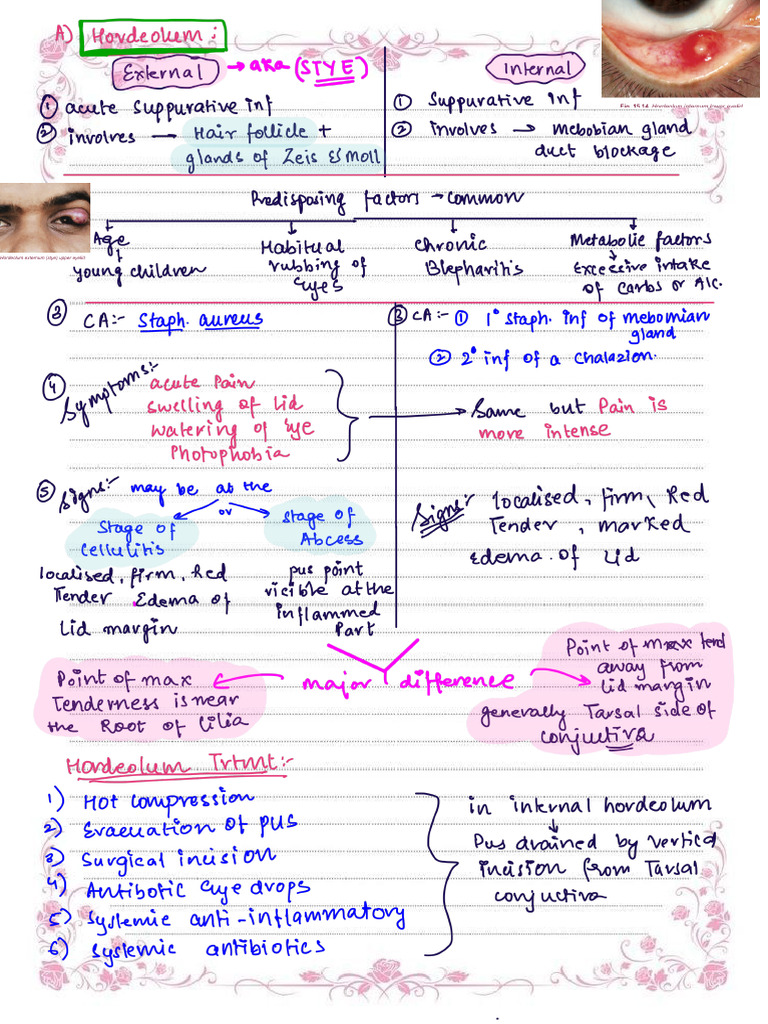 A) Hordeolum:
External → aka (STYE)
① acute suppurative inf
② involves → Hair follicle +
glands of Zeis & Moll
Internal
① Suppurative inf
② involves → mebobian gland
duct blockage
Predisposing factors → common
Age
↓
young children
Habitual
rubbing of
Eyes
chronic
Blepharitis
Metabolic factors
↓
Excessive intake
of carbs or Alc.
③ CA:- Staph. aureus
④ Symptoms:-
acute Pain
swelling of lid
watering of eye
Photophobia
⑤ Signs:- may be at the
or
Stage of
cellulitis
Stage of
Abcess
localised, firm, Red
Tender Edema of
Lid margin
pus point
visible at the
inflammed
Part
③ CA:- ① 1° staph. inf of mebomian
gland
② 2° inf of a chalazion.
→ Same but Pain is
more intense
Signs:- localised, firm, Red
Tender, marked
edema of Lid
major difference
Point of max
Tenderness is near
the Root of Cilia
Point of max tend
away from
Lid margin
generally Tarsal side of
conjuctiva
Hordeolum Trtmt:-
1) Hot compression
2) Evacuation of pus
3) Surgical incision
4) Antibotic eye drops
5) Systemic anti-inflammatory
6) Systemic antibiotics
in internal hordeolum
↓
Pus drained by vertical
incision from Tarsal
conjuctiva